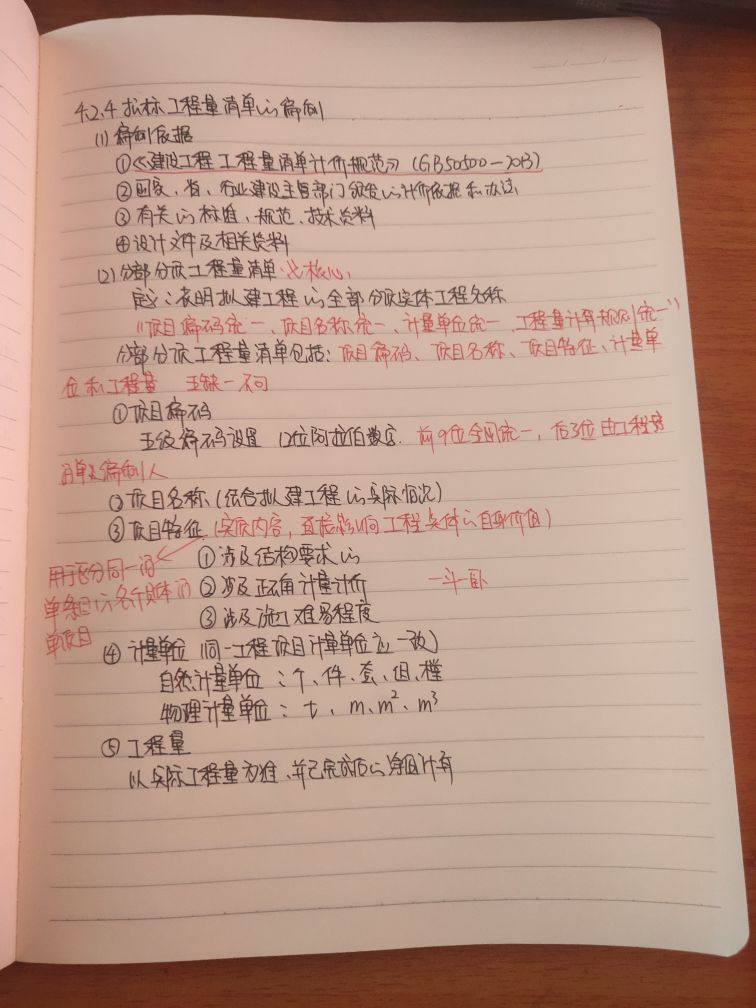 4.2.4 招标工程量清单的编制
(1) 编制依据
①《建设工程工程量清单计价规范》(GB50500-2013)
②国家、省、行业建设主管部门颁发的计价依据和办法
③有关的标准、规范、技术资料
④设计文件及相关资料
(2)分部分项工程量清单 核心
定义:表明拟建工程的全部分项实体工程名称
"项目编码统一、项目名称统一、计量单位统一、工程量计算规则统一"
分部分项工程量清单包括:项目编码、项目名称、项目特征、计量单
位和工程量 五缺一不可
①项目编码
五级编码设置 12位阿拉伯数字. 前9位全国统一,后3位由工程量
清单编制人
②项目名称(结合拟建工程的实际情况)
③项目特征(实质内容,直接影响工程实体的自身价值)
用于区分同一
单条目的各个具体的
单项目
①涉及结构要求的
②涉及正确计量计价
③涉及施工难易程度
④计量单位(同一工程项目计量单位应一致)
自然计量单位:个、件、套、组、樘
物理计量单位:t、m、m²、m³
⑤工程量
以实际工程量为准,并已完成后的净值计算